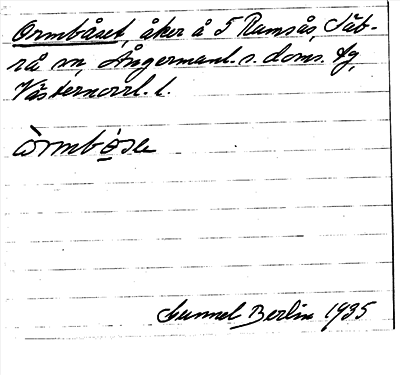 Ormbåset, åker å 5 Ramsås, Säb-
rå sn, Ångermanl. s. doms. sg,
Västernorrl. l.
òrmbósɛ
Gunnel Berlin 1935